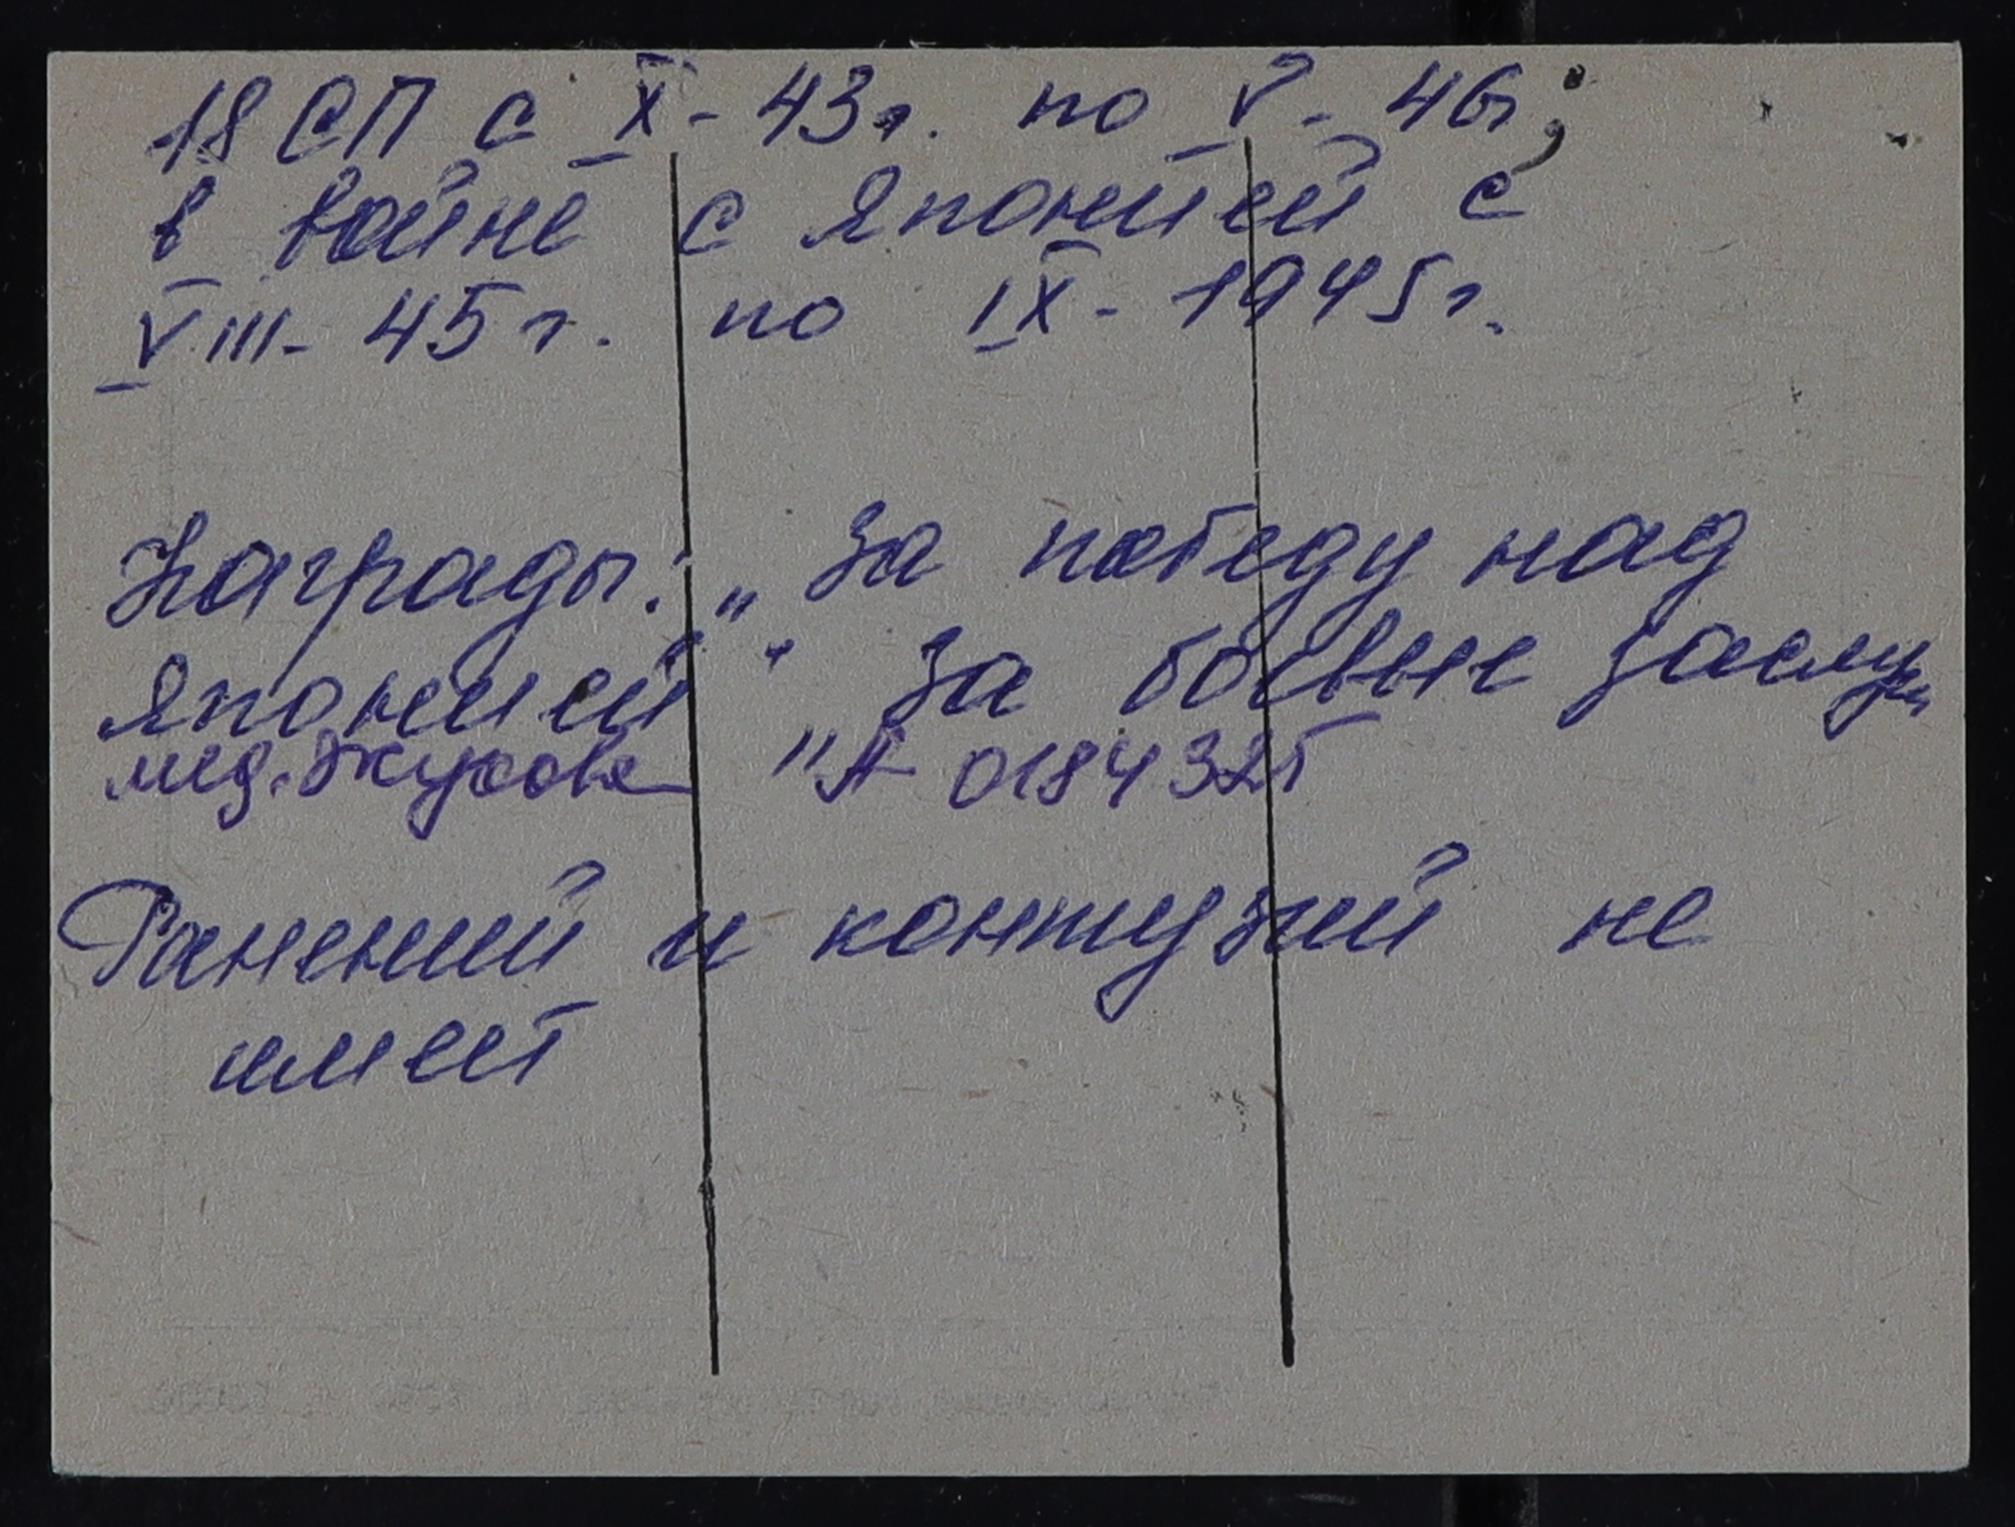 18 СП с X - 43 г. по V - 46 г;
в войне с Японией с
VIII - 45 г. по IX - 1945 г.
Награды: „За победу над
Японией". За боевые заслуги
мед. Жукова "А 0184325
Ранений и контузий не
имеет